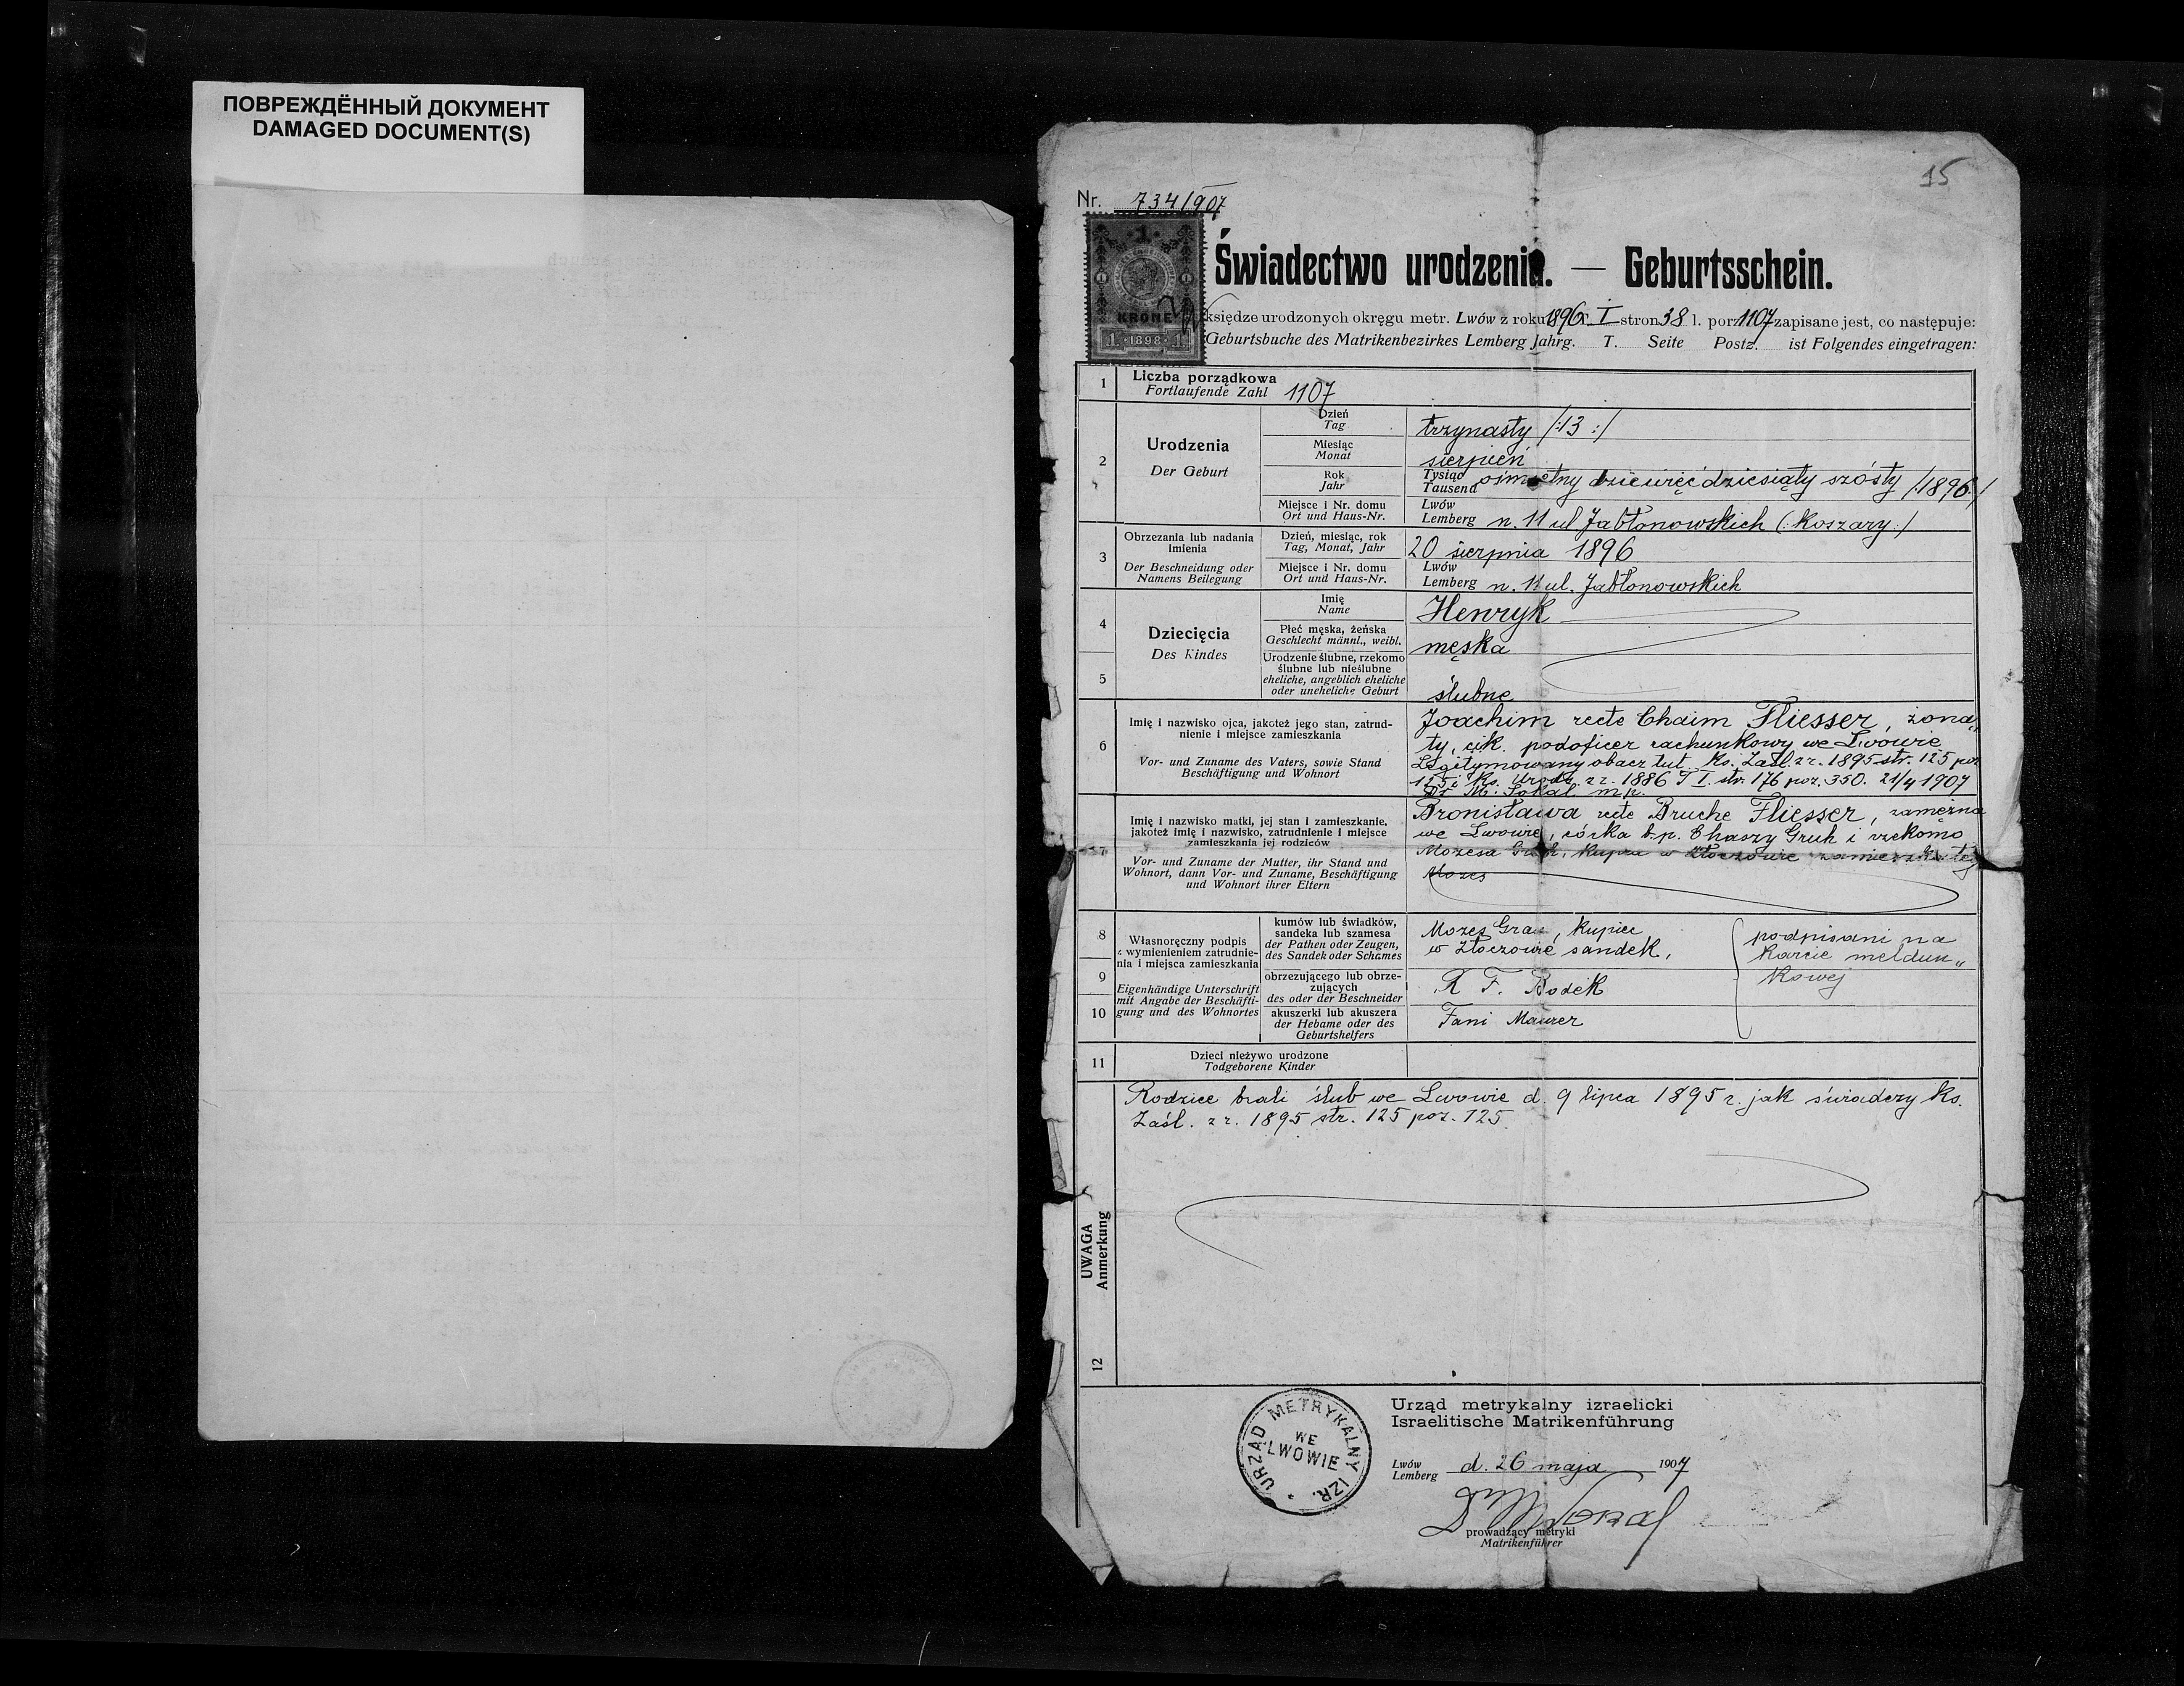 ПОВРЕЖДЁННЫЙ ДОКУМЕНТ
DAMAGED DOCUMENT(S)
15
Nr. 734/907
1
KRONE
1 · 1898 · 1
Świadectwo urodzenia. — Geburtsschein.
W księdze urodzonych okręgu metr. Lwów z roku 1896 T. I stron 38 l. porz 1107 zapisane jest, co następuje:
Geburtsbuche des Matrikenbezirkes Lemberg Jahrg. T. Seite Postz. ist Folgendes eingetragen:
1 Liczba porządkowa
Fortlaufende Zahl 1107
2 Urodzenia
Der Geburt
Dzień
Tag
trzynasty /:13:/
Miesiąc
Monat
sierpień
Rok
Jahr
Tysiąc
Tausend
ośmsetny dziewięćdziesiąty szósty /:1896:/
Miejsce i Nr. domu
Ort und Haus-Nr.
Lwów
Lemberg n. 11 ul Jabłonowskich (:Koszary:)
3 Obrzezania lub nadania
imienia
Der Beschneidung oder
Namens Beilegung
Dzień, miesiąc, rok
Tag, Monat, Jahr
20 sierpnia 1896
Miejsce i Nr. domu
Ort und Haus-Nr.
Lwów
Lemberg n. 11 ul. Jabłonowskich
4
5
Dziecięcia
Des Kindes
Imię
Name
Henryk
Płeć męska, żeńska
Geschlecht männl., weibl.
męska
Urodzenie ślubne, rzekomo
ślubne lub nieślubne
eheliche, angeblich eheliche
oder uneheliche Geburt
ślubne
6 Imię i nazwisko ojca, jakoteż jego stan, zatrud-
nienie i miejsce zamieszkania
Vor- und Zuname des Vaters, sowie Stand
Beschäftigung und Wohnort
Joachim recte Chaim Fliesser, żona„
ty, c.ik. podoficer rachunkowy we Lwowie
Legitymowany obacz tut. Ks. Zaśl. z r. 1895 str. 125 poz
125 i Ks. Urodz. z r. 1886 T I. str. 176 poz. 350. 21/4 1907
Dr M. Sokal m.p.
7 Imię i nazwisko matki, jej stan i zamieszkanie,
jakoteż imię i nazwisko, zatrudnienie i miejsce
zamieszkania jej rodziców
Vor- und Zuname der Mutter, ihr Stand und
Wohnort, dann Vor- und Zuname, Beschäftigung
und Wohnort ihrer Eltern
Bronisława recte Bruche Fliesser, zamężna
we Lwowie, córka b.p. Chaszy Gruh i rzekomo
Mozesa Kupca w Złoczowie zamieszkałej
Mozes
8
9
10
Własnoręczny podpis
z wymienieniem zatrudnie-
nia i miejsca zamieszkania
Eigenhändige Unterschrift
mit Angabe der Beschäfti-
gung und des Wohnortes
kumów lub świadków,
sandeka lub szamesa
der Pathen oder Zeugen,
des Sandek oder Schames
Mozes kupiec
w Złoczowie sandek,
obrzezującego lub obrze-
zujących
des oder der Beschneider
R F. Bodek
akuszerki lub akuszera
der Hebame oder des
Geburtshelfers
Fani Maurer
podpisani na
karcie meldun„
kowej
11 Dzieci nieżywo urodzone
Todgeborene Kinder
12 UWAGA
Anmerkung
Rodzice brali ślub we Lwowie d. 9 lipca 1895 r. jak świadczy Ks.
Zaśl. z r. 1895 str. 125 poz. 125.
URZĄD METRYKALNY IZR.
WE
LWOWIE
Urząd metrykalny izraelicki
Israelitische Matrikenführung
Lwów
Lemberg d. 26 maja 1907
Dr M Sokal
prowadzący metryki
Matrikenführer